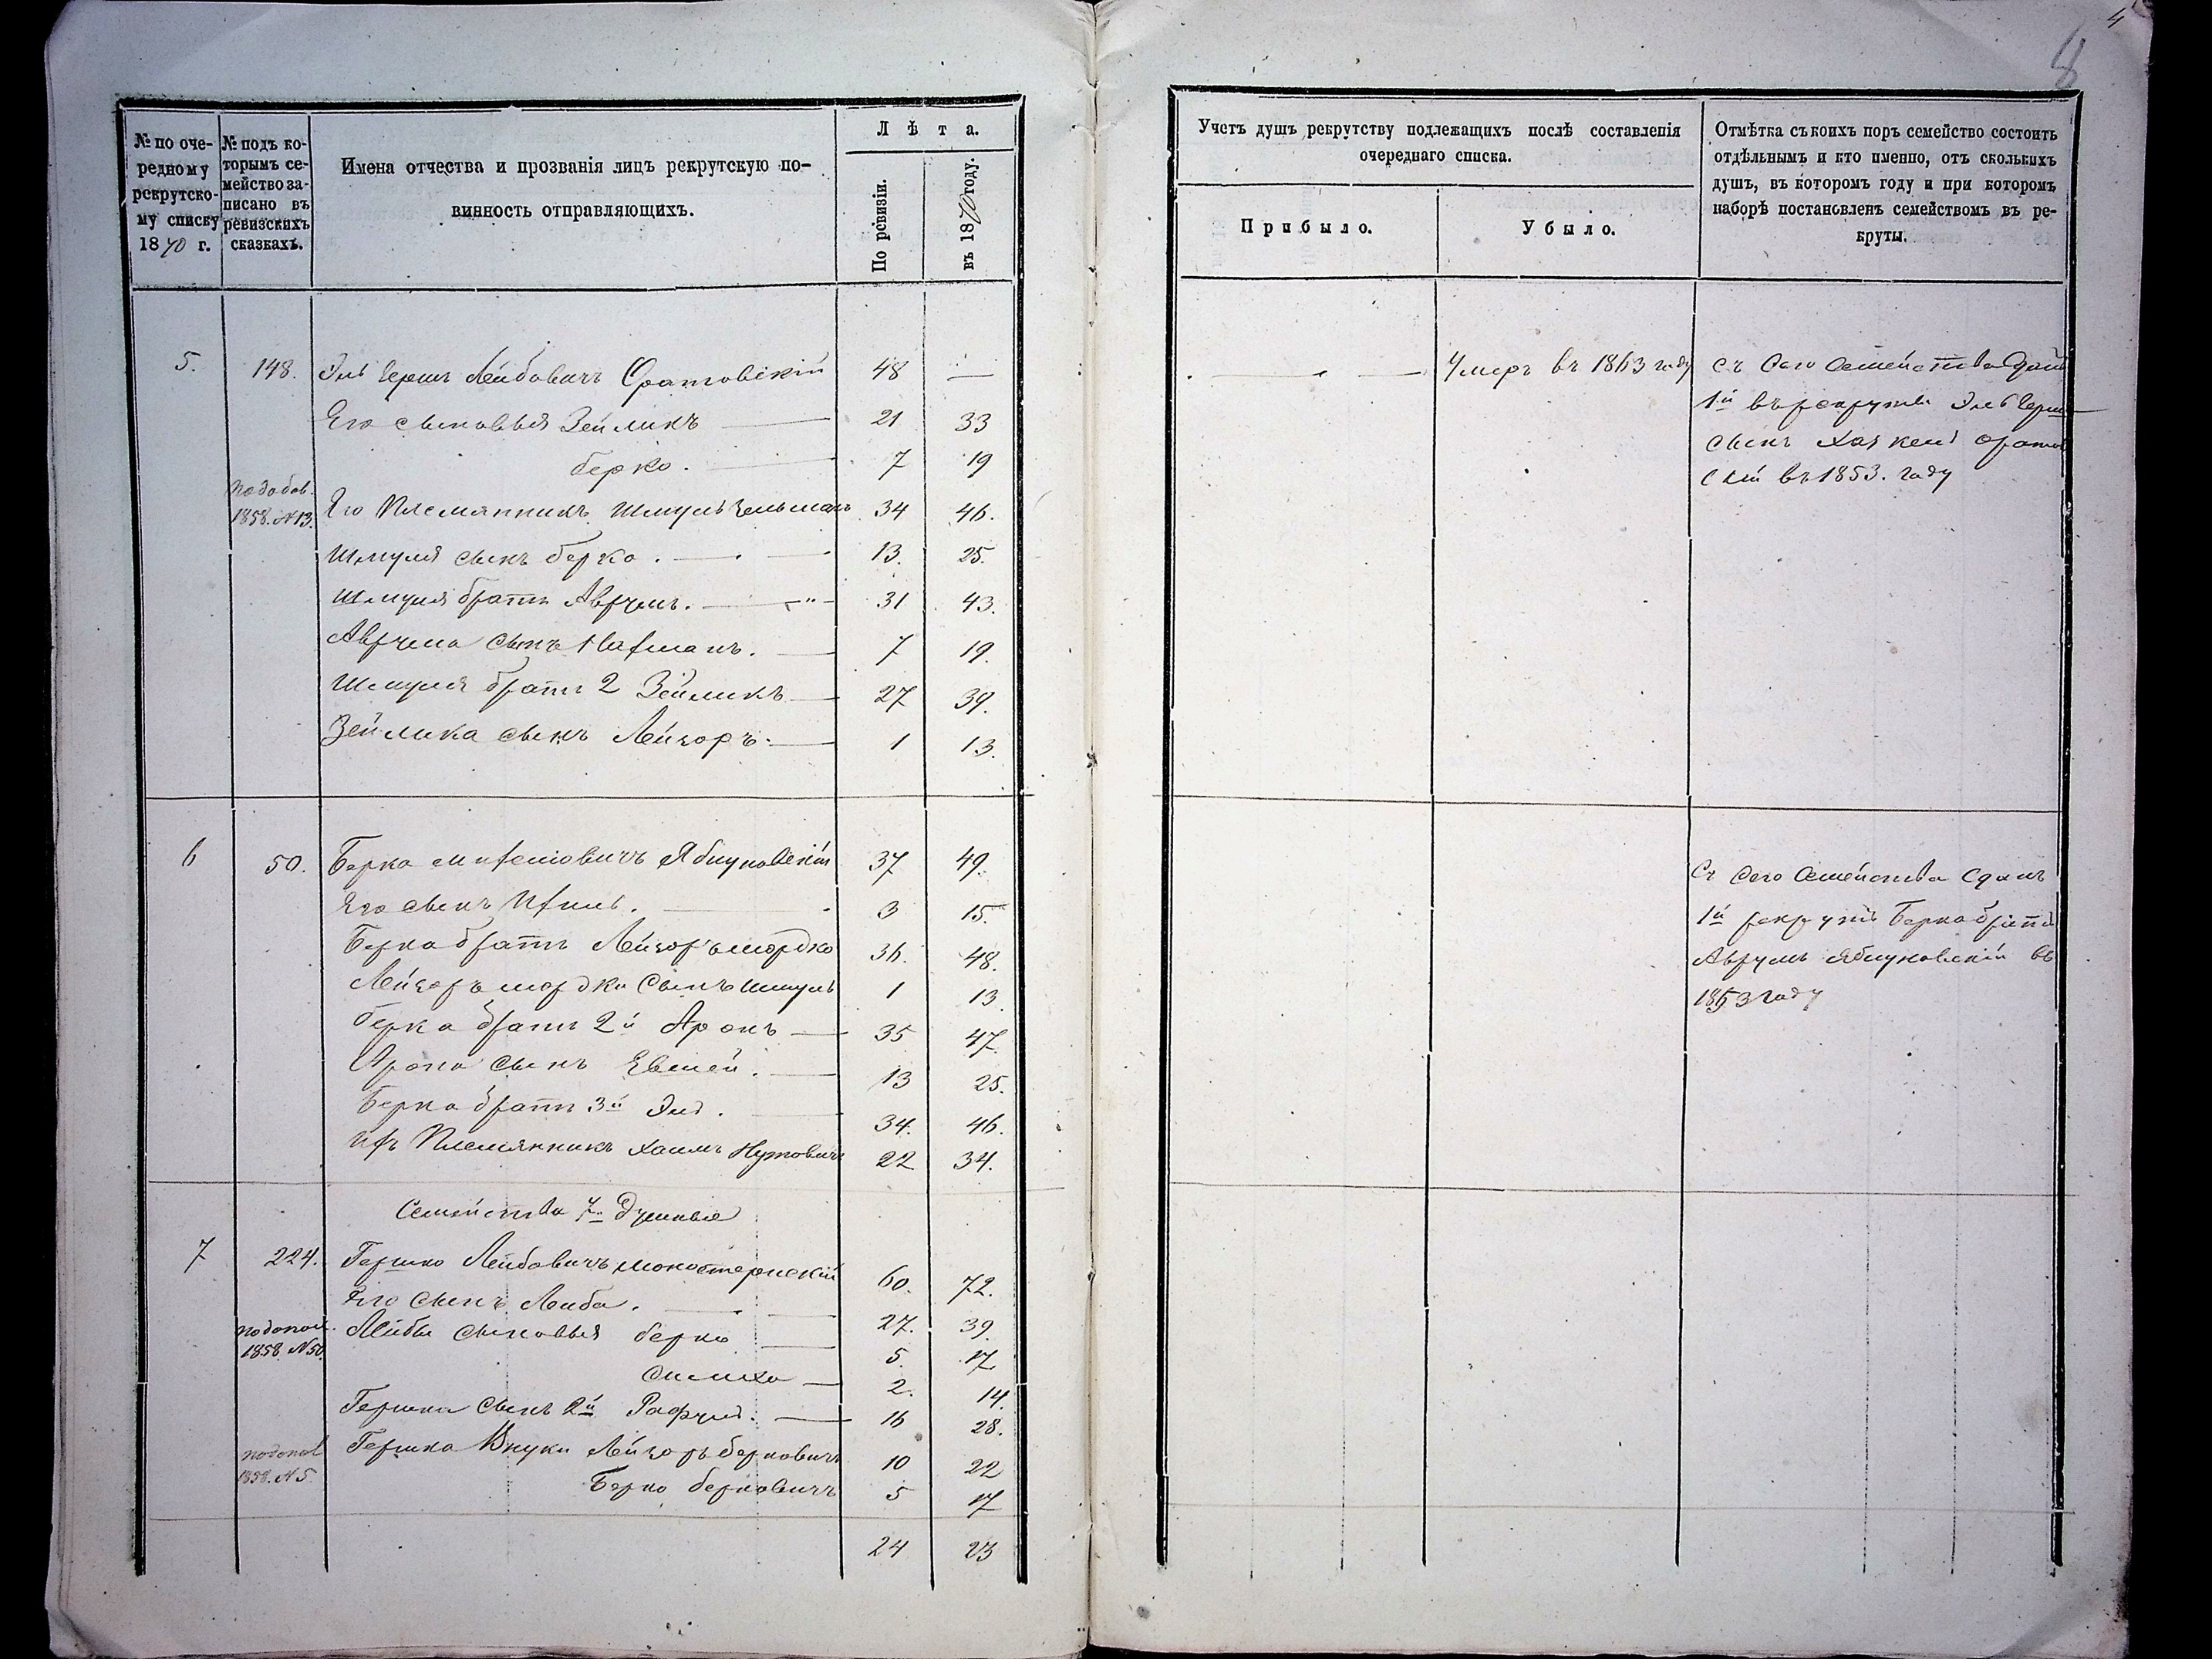 4
8
№ по оче-
редному
рекрутско-
му списку
1870 г.
№ подъ ко-
торымъ се-
мейство за-
писано въ
ревизскихъ
сказкахъ.
Имена отчества и прозванія лицъ рекрутскую по-
винность отправляющихъ.
Лѣта.
По ревизіи.
въ 1870 году.
Учетъ душъ рекрутству подлежащихъ послѣ составленія
очереднаго списка.
Прибыло.
Убыло.
Отмѣтка съ коихъ поръ семейство состоитъ
отдѣльнымъ и кто именно, отъ сколькихъ
душъ, въ котором году и при котором
наборѣ постановленъ семействомъ въ ре-
круты.
5. 148. Эль Герш Лейбовичъ Оратовскій 48 — Умеръ въ 1863 году
Его сыновья Зейликъ 21 33
Берко. 7 19
1858. N 13. Его Племянникъ Шмуль Зельман 34 46.
Шмуля сынъ Берко. 13. 25.
Шмуля братъ Аврумъ. 31 43.
Аврума сынъ Нахманъ. 7 19.
Шмуля братъ 2 Зейликъ 27 39.
Зейлика сынъ Лейзоръ. 1 13.
Съ сего Семейства
1й въ рекруты Эль Герш
сынъ
скій въ 1853. году
6 50. Берко Яблуновскій 37 49.
Его сынъ 3 15.
Берка братъ Лейзоръ Мордко 36. 48.
Лейзоръ Мордки Сынъ Шмуль 1 13.
Берка братъ 2й Аронъ 35 47.
Арона сынъ Евсей. 13 25.
Берка братъ 3й 34. 46.
Ихъ Племянникъ Хаимъ 22 34.
Съ сего Семейства Сданъ
1й рекрутъ Берка братъ
Аврумъ Яблуновскій въ
1853 году
Семейства 7 Душныя
7 224. Гершко Лейбовичъ Монастерискій 60. 72.
Его Сынъ Лейба. 27. 39.
1858 N 50. Лейбы сыновья Берко 5. 17
Симха 2. 14.
Гершка Сынъ 2й Рафуль. 16 28.
1858. N 5. Гершка Внуки Лейзоръ Берковичъ 10 22
Берко Берковичъ 5 17
24 23